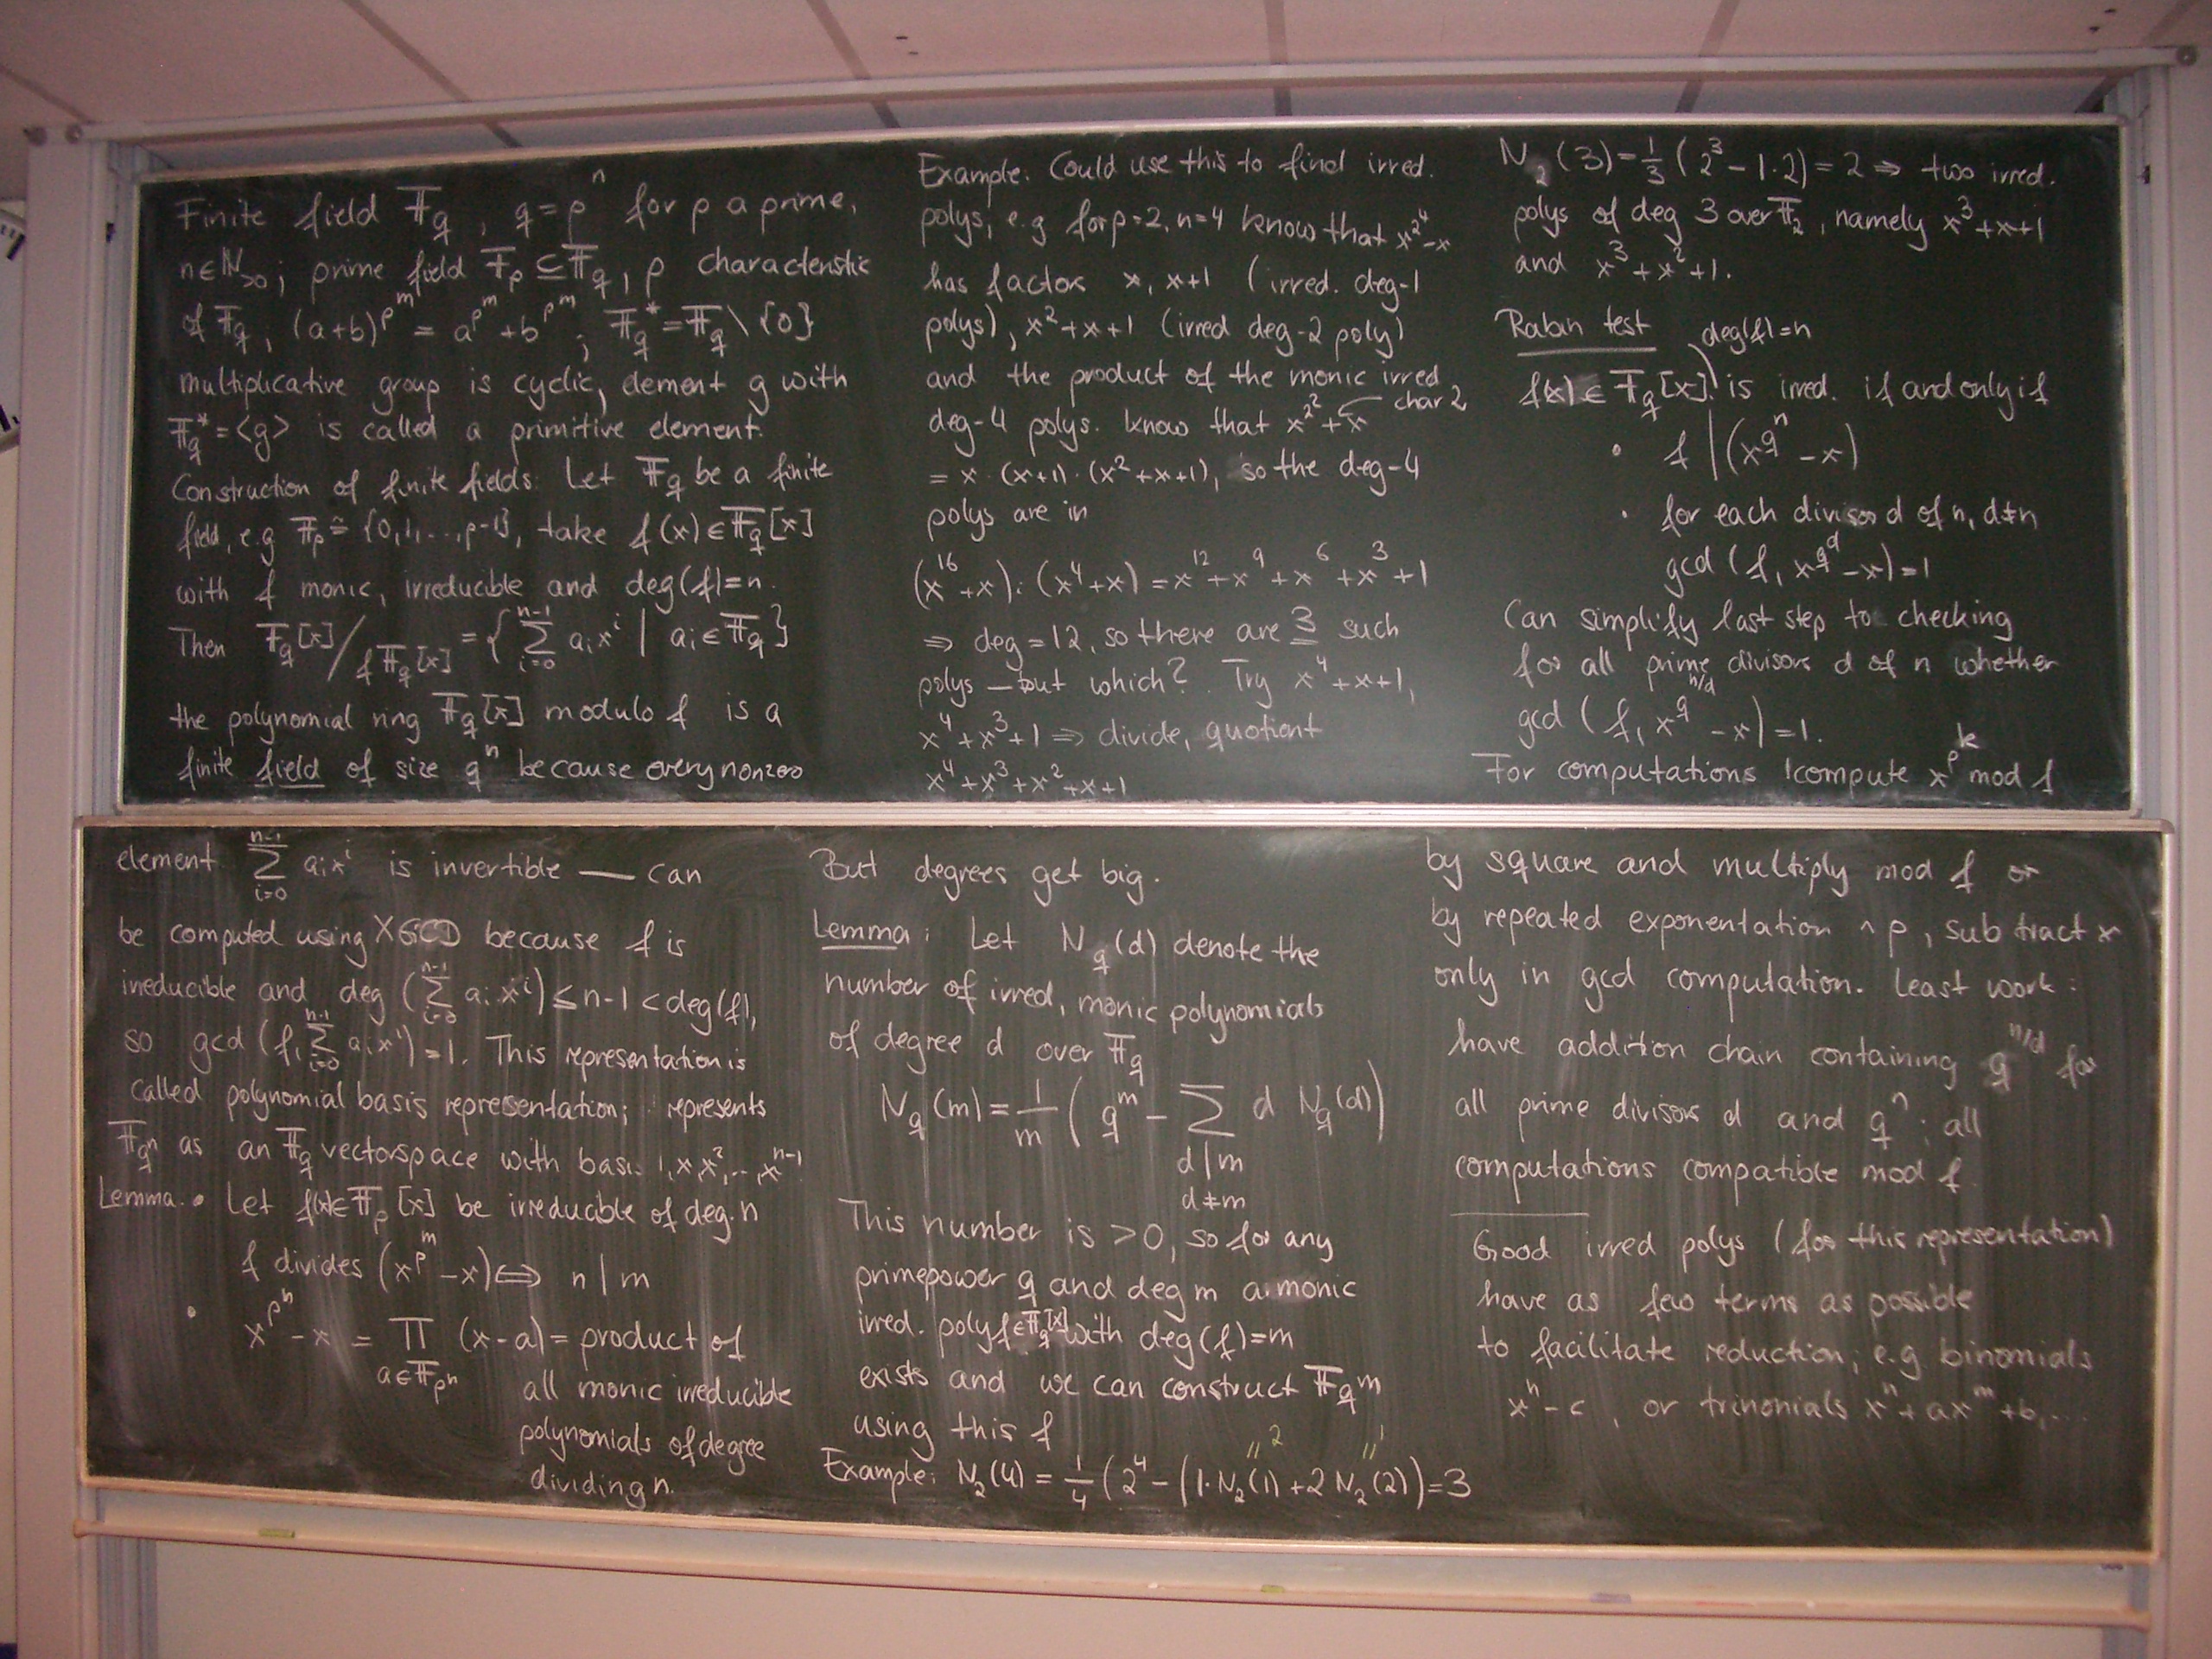 Finite field 𝔽_q, q = p^n for p a prime,
n ∈ ℕ_{>0}; prime field 𝔽_p ⊆ 𝔽_q, p characteristic
of 𝔽_q; (a+b)^{p^m} = a^{p^m} + b^{p^m}; 𝔽_q^* = 𝔽_q \ {0}
multiplicative group is cyclic, element g with
𝔽_q^* = <g> is called a primitive element.
Construction of finite fields: Let 𝔽_q be a finite
field, e.g 𝔽_p ≅ {0,1,...,p-1}, take f(x) ∈ 𝔽_q[x]
with f monic, irreducible and deg(f)=n.
Then 𝔽_q[x]/f𝔽_q[x] = { ∑_{i=0}^{n-1} a_i x^i | a_i ∈ 𝔽_q }
the polynomial ring 𝔽_q[x] modulo f is a
finite field of size q^n because every nonzero
element ∑_{i=0}^{n-1} a_i x^i is invertible — can
be computed using XGCD because f is
irreducible and deg (∑_{i=0}^{n-1} a_i x^i) ≤ n-1 < deg(f),
so gcd (f, ∑_{i=0}^{n-1} a_i x^i) = 1. This representation is
called polynomial basis representation; represents
𝔽_{q^n} as an 𝔽_q vectorspace with basis 1, x, x^2, .., x^{n-1}
Lemma. • Let f(x) ∈ 𝔽_p[x] be irreducible of deg. n
f divides (x^{p^m} - x) ⟺ n | m
• x^{p^n} - x = ∏_{a∈𝔽_{p^n}} (x-a) = product of
all monic irreducible
polynomials of degree
dividing n.
Example: Could use this to find irred.
polys, e.g for p=2, n=4 know that x^{2^4} - x
has factors x, x+1 (irred. deg-1
polys), x^2+x+1 (irred deg-2 poly)
and the product of the monic irred
deg-4 polys. know that x^{2^2} + x ← char 2
= x · (x+1) · (x^2+x+1), so the deg-4
polys are in
(x^16 + x) : (x^4 + x) = x^12 + x^9 + x^6 + x^3 + 1
⇒ deg = 12, so there are 3 such
polys — but which? Try x^4 + x + 1,
x^4 + x^3 + 1 ⇒ divide, quotient
x^4 + x^3 + x^2 + x + 1
But degrees get big.
Lemma: Let N_q(d) denote the
number of irred, monic polynomials
of degree d over 𝔽_q
N_q(m) = 1/m ( q^m - ∑_{d|m, d≠m} d N_q(d) )
This number is >0, so for any
primepower q and deg m a monic
irred. poly f∈𝔽_q[x] with deg(f)=m
exists and we can construct 𝔽_{q^m}
using this f
"2 "1
Example: N_2(4) = 1/4 (2^4 - (1·N_2(1) + 2 N_2(2)) = 3
N_2(3) = 1/3 (2^3 - 1·2) = 2 ⇒ two irred.
polys of deg 3 over 𝔽_2, namely x^3+x+1
and x^3 + x^2 + 1.
Rabin test deg(f)=n
f(x) ∈ 𝔽_q[x] is irred. if and only if
• f | (x^{q^n} - x)
• for each divisor d of n, d≠n
gcd (f, x^{q^d} - x) = 1
Can simplify last step to checking
for all prime divisors d of n whether
gcd (f, x^{q^{n/d}} - x) = 1.
For computations !compute x^{p^k} mod f
by square and multiply mod f or
by repeated exponentation ^p, subtract x
only in gcd computation. Least work:
have addition chain containing q^{n/d} for
all prime divisors d and q^n; all
computations compatible mod f.
Good irred polys (for this representation)
have as few terms as possible
to facilitate reduction; e.g binomials
x^n - c, or trinomials x^n + ax^m + b, ...